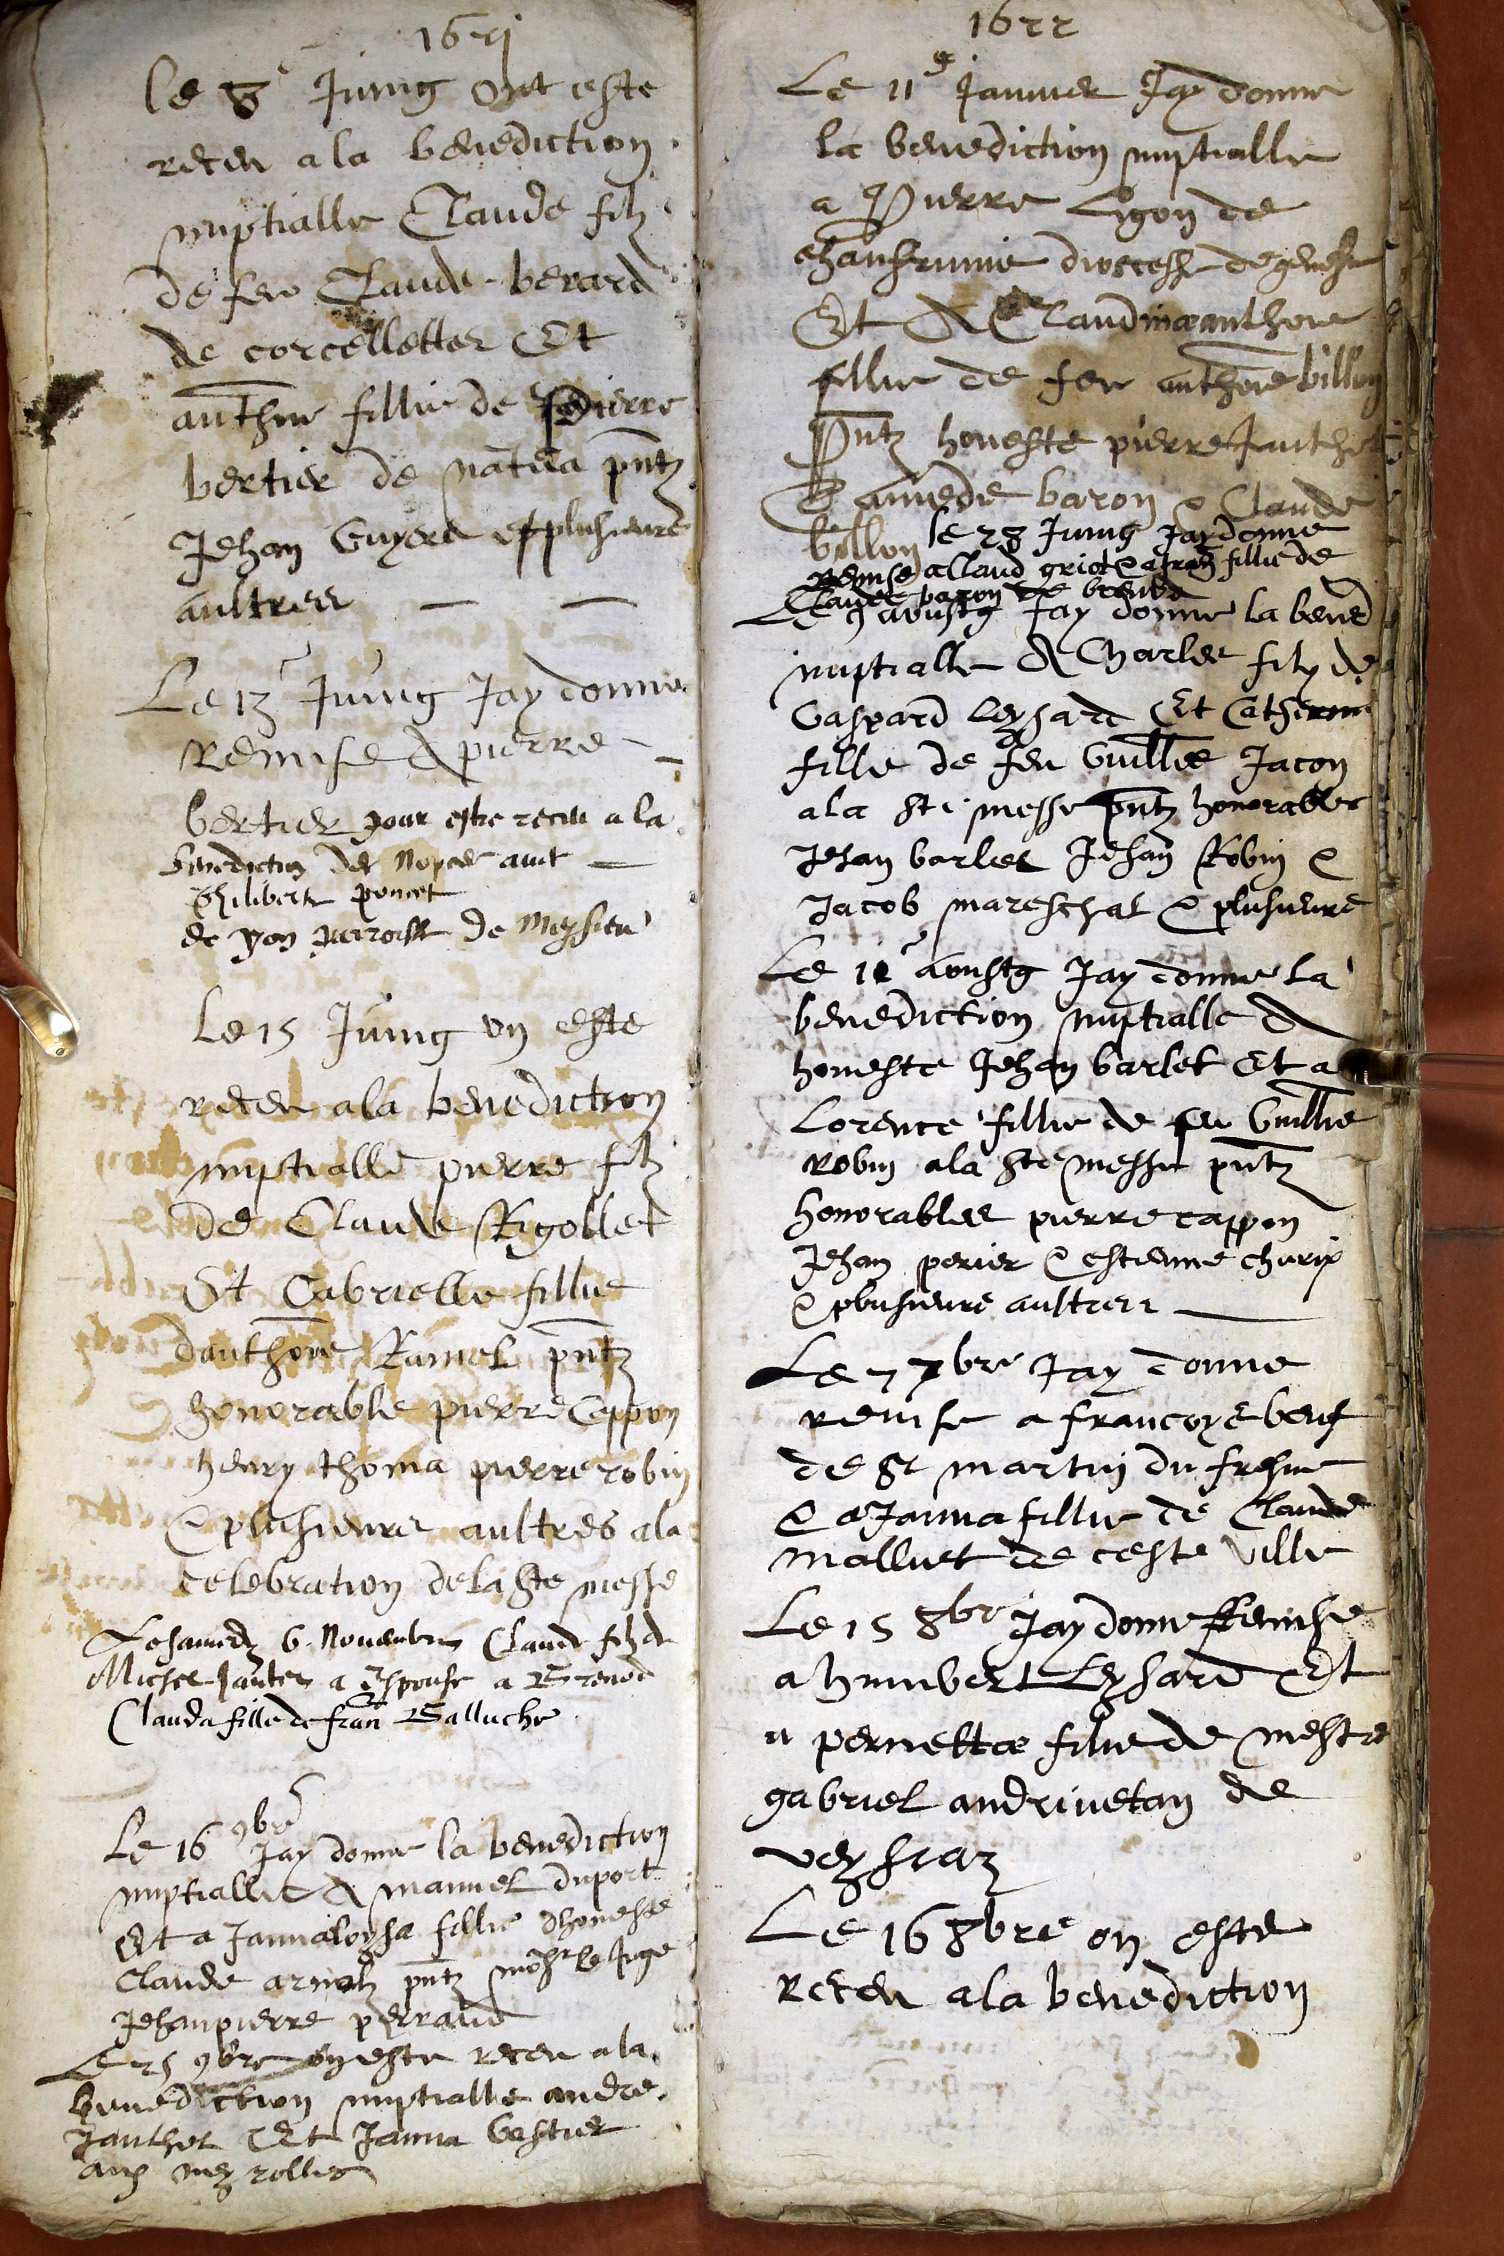 162j
Le 8e Juing Ont este
receu a la benediction
nuptialle Claude filz
de feu Claude berard
de corcellettes Et
anthoe fillie de pierre
bertier de natua pntz
Jehan Guyere et plusieurs
aultres
Le 13e Juing Jay donne
Remise A pierre
bertier pour estre receu a la
benediction des Nopces avec
Philiberte poncet
de paroisse de
Le 15 Juing on este
receu a la benediction
nuptialle pierre filz
de Claude Rigollet
Et Gabrielle fillie
danthoe Ramel pntz
honorable pierre Cappon
henry thoma pierre robin
& plusieurs aultres a la
celebration de la Ste messe
Le samedy 6 Novembre Claude filz de
Michel Janter a Espouse a
Clauda fille de fran Galluche
Le 16 9bre Jay donne la benediction
nuptialle A manuel duport
Et a Janna loysa fillie dhoneste
Claude pntz mosr le Juge
Jehan pierre perraud
Le 25 9bre on este receu a la
benediction nuptialle andre
Janthet Et Janna Gestier
aux mey rolles
1622
Le 11e Janvier Jay donne
la benediction nuptialle
a Pierre Ligon de
diocesse de geneve
Et A Claudina anthoe
fillie de feu anthoe billon
Pntz honeste pierre Janthet
& amede baron & Claude
billon
le 28 Juing Jay donne
remise a Claud griot & a fran fillie de
Claude baron de
Le 9 aoustg Jay donne la bened
nuptialle A Charles filz de
Gaspard leysard Et Catherine
fille de feu Guillme Jacon
a la Ste messe pntz honorables
Jehan barlet Jehan Robin &
Jacob mareschal & plusieurs
Le aoustg Jay donne la
benediction nuptialle A
honeste Jehan barlet Et a
Lorence fillie de feu Guillme
Robin a la Ste messe pntz
honorables pierre cappon
Jehan perier & estienne
& plusieurs aultres
Le 7 7bre Jay donne
remise a francoys beuf
de St martin du fresne
& a Janna fillie de Claude
malliet de ceste ville
Le 15 8bre Jay donne Remise
a humbert Leysard Et
a pernetta fillie de mestre
gabriel andrivetan de
veysiaz
Le 16 8bre on este
Receu a la benediction